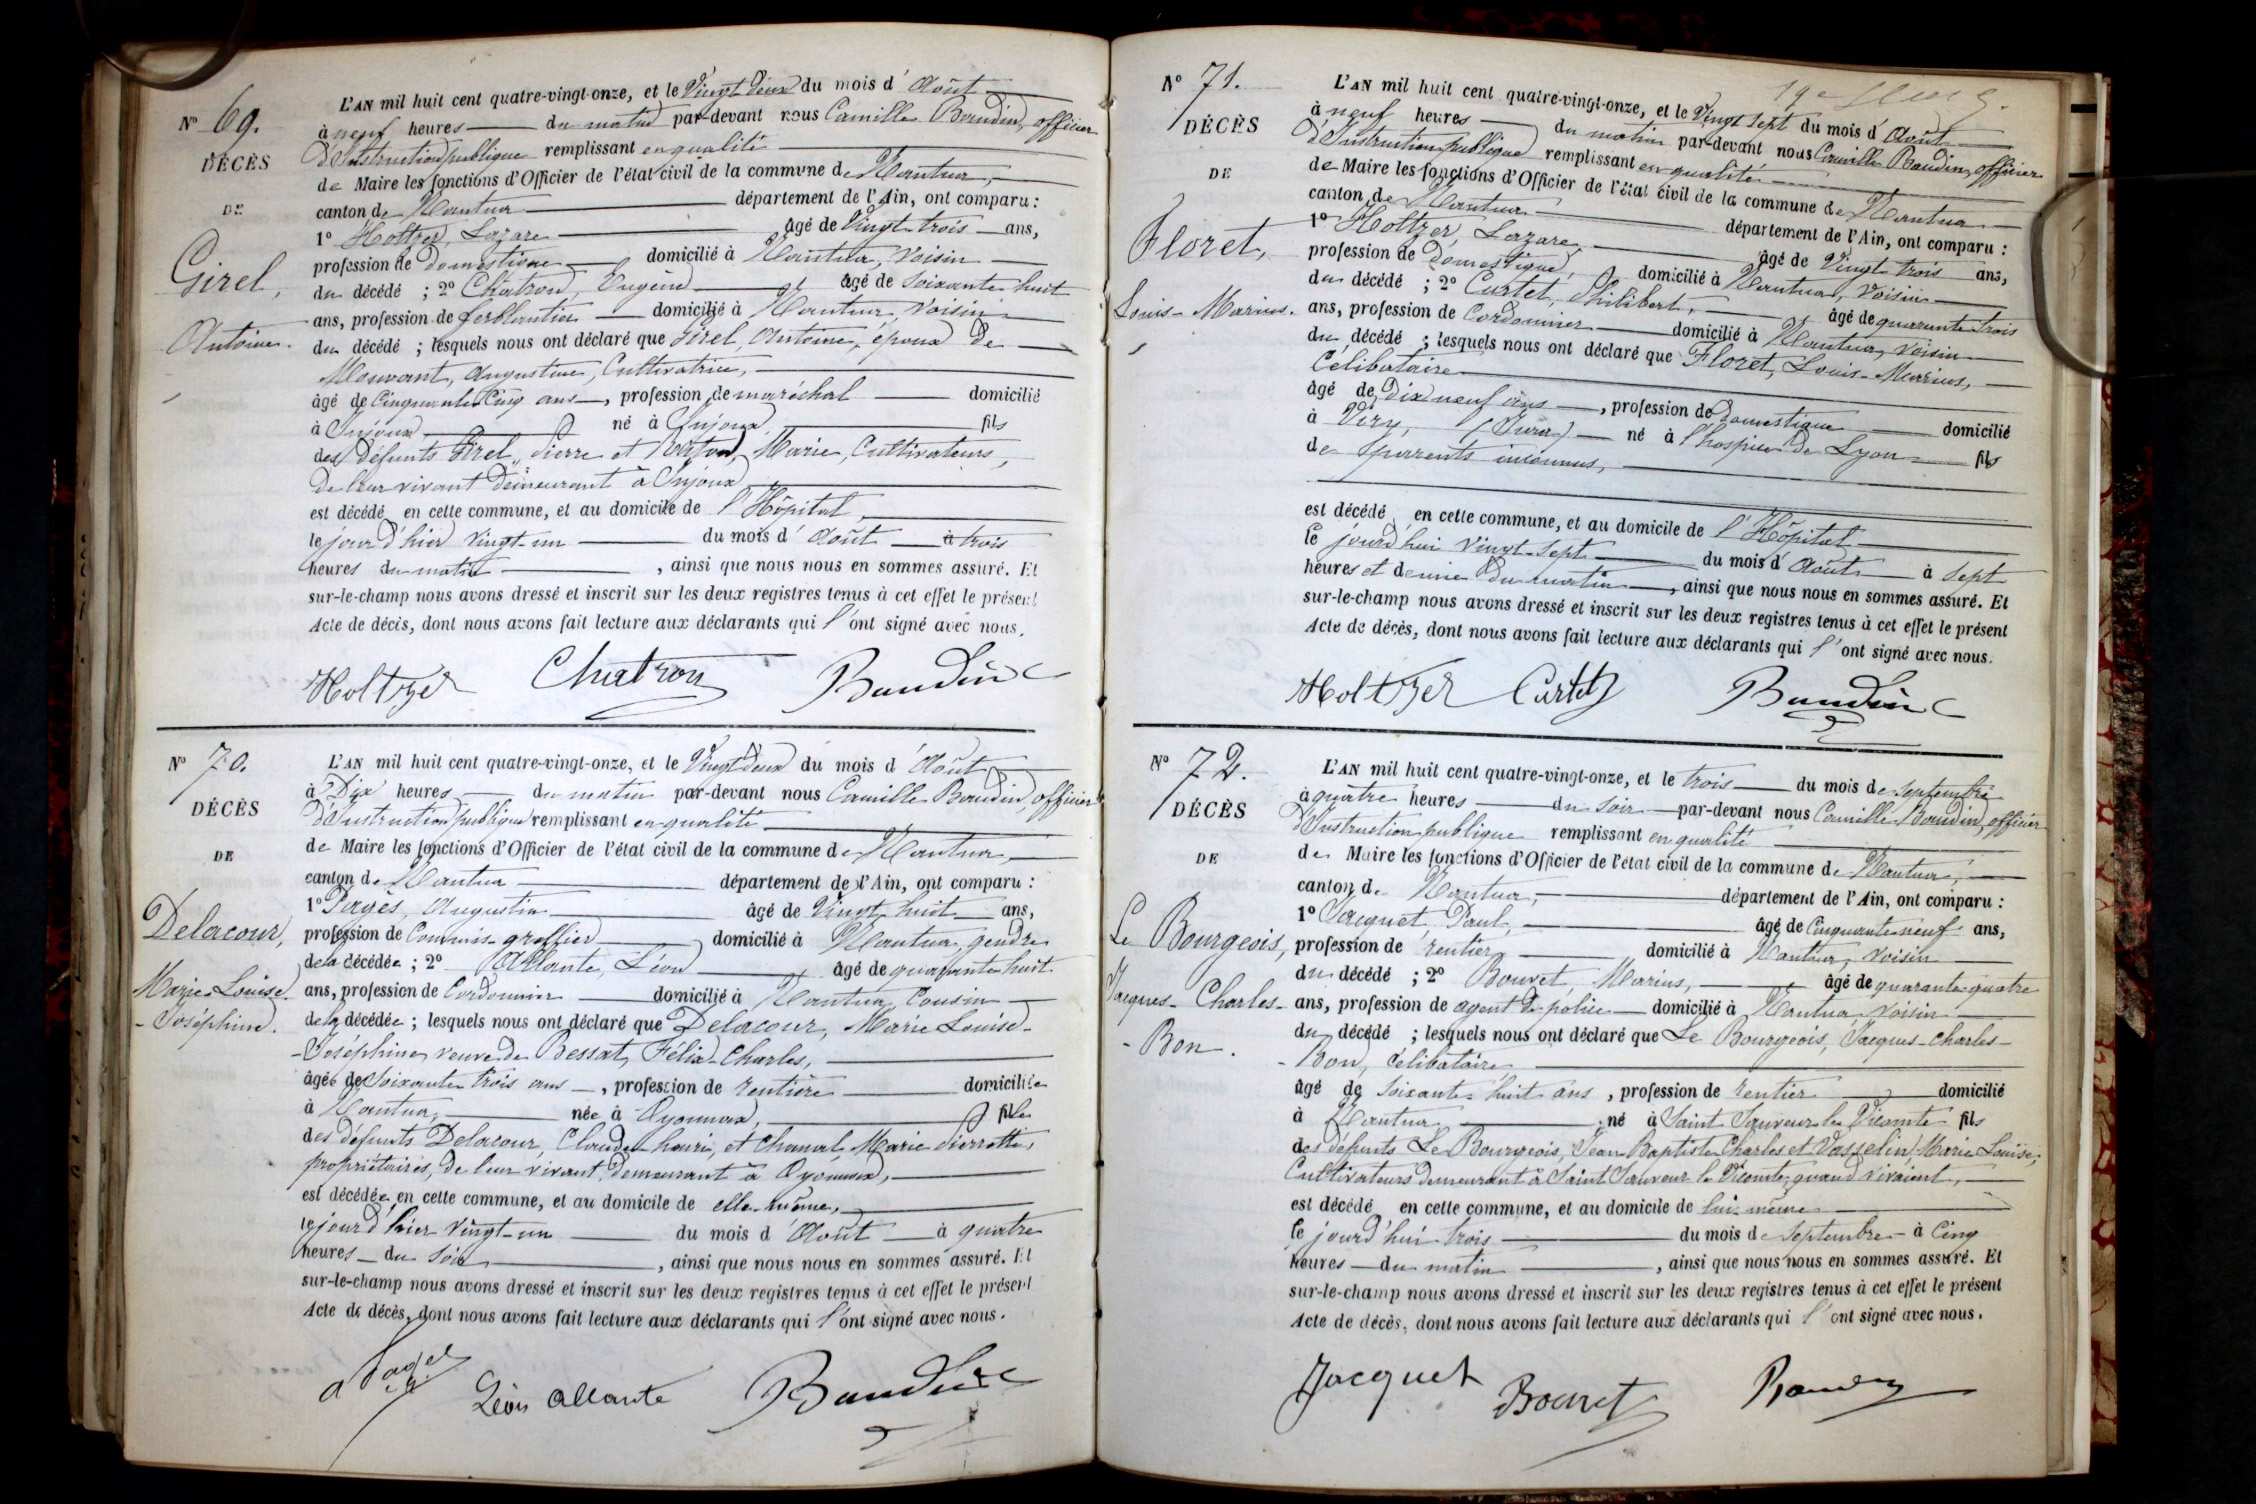 N° 69.
DÉCÈS
DE
Girel,
Antoine.
L'AN mil huit cent quatre-vingt-onze, et le Vingt deux du mois d'Août
à neuf heures du matin par-devant nous Camille Baudin, officier
d'Instruction publique remplissant en qualité
de Maire les fonctions d'Officier de l'état civil de la commune de Nantua,
canton de Nantua département de l'Ain, ont comparu :
1° Holtzer, Lazare âgé de Vingt trois ans,
profession de domestique domicilié à Nantua, voisin
du décédé ; 2° Chatron, Eugène âgé de soixante huit
ans, profession de ferblantier domicilié à Nantua, voisin
du décédé ; lesquels nous ont déclaré que Girel, Antoine, époux de
Mouvant, Augustine, Cultivatrice,
âgé de Cinquante Cinq ans, profession de maréchal domicilié
à Injoux né à Injoux, fils
des défunts Girel, Pierre et Marie, Cultivateurs,
de leur vivant demeurant à Injoux
est décédé en cette commune, et au domicile de l'Hôpital,
le jour d'hier vingt-un du mois d'Août à trois
heures du matin, ainsi que nous nous en sommes assuré. Et
sur-le-champ nous avons dressé et inscrit sur les deux registres tenus à cet effet le présent
Acte de décès, dont nous avons fait lecture aux déclarants qui l'ont signé avec nous.
Holtzer Chatron Baudin
N° 70.
DÉCÈS
DE
Delacour,
Marie-Louise
-Joséphine.
L'AN mil huit cent quatre-vingt-onze, et le Vingt deux du mois d'Août
à Dix heures du matin par-devant nous Camille Baudin, officier
d'Instruction publique remplissant en qualité
de Maire les fonctions d'Officier de l'état civil de la commune de Nantua,
canton de Nantua département de l'Ain, ont comparu :
1° Pagès, Augustin âgé de Vingt huit ans,
profession de Commis-greffier domicilié à Nantua, gendre
de la décédée ; 2° Allante, Léon âgé de quarante huit
ans, profession de Cordonnier domicilié à Nantua, Cousin
de la décédée ; lesquels nous ont déclaré que Delacour, Marie Louise-
-Joséphine, veuve de Bessat, Félix-Charles,
âgée de Soixante trois ans, profession de rentière domiciliée
à Nantua, née à Oyonnax, fille
des défunts Delacour, Claude henri, et Chanal, Marie Pierrette,
propriétaires, de leur vivant demeurant à Oyonnax,
est décédée en cette commune, et au domicile de elle-même,
le jour d'hier vingt-un du mois d'Août à quatre
heures du soir, ainsi que nous nous en sommes assuré. Et
sur-le-champ nous avons dressé et inscrit sur les deux registres tenus à cet effet le présent
Acte de décès, dont nous avons fait lecture aux déclarants qui l'ont signé avec nous.
a Pagès Léon Allante Baudin
N° 71.
DÉCÈS
DE
Floret,
Louis-Marius.
L'AN mil huit cent quatre-vingt-onze, et le Vingt sept du mois d'Août
à neuf heures du matin par-devant nous Camille Baudin, officier
d'Instruction publique remplissant en qualité
de Maire les fonctions d'Officier de l'état civil de la commune de Nantua
canton de Nantua département de l'Ain, ont comparu :
1° Holtzer, Lazare, âgé de Vingt trois ans,
profession de domestique, domicilié à Nantua, voisin
du décédé ; 2° Curtet, Philibert, âgé de quarante trois
ans, profession de Cordonnier domicilié à Nantua, voisin
du décédé ; lesquels nous ont déclaré que Floret, Louis-Marius,
Célibataire
âgé de Dix neuf ans, profession de Domestique domicilié
à Viry, (Jura) né à l'hospice de Lyon fils
de parents inconnus,
est décédé en cette commune, et au domicile de l'Hôpital
le jourd'hui vingt-sept du mois d'Août à sept
heures et demie du matin, ainsi que nous nous en sommes assuré. Et
sur-le-champ nous avons dressé et inscrit sur les deux registres tenus à cet effet le présent
Acte de décès, dont nous avons fait lecture aux déclarants qui l'ont signé avec nous.
Holtzer Curtet Baudin
N° 72.
DÉCÈS
DE
Le Bourgeois,
Jacques-Charles-
-Bon.
L'AN mil huit cent quatre-vingt-onze, et le trois du mois de septembre
à quatre heures du soir par-devant nous Camille Baudin, officier
d'Instruction publique remplissant en qualité
de Maire les fonctions d'Officier de l'état civil de la commune de Nantua,
canton de Nantua, département de l'Ain, ont comparu :
1° Jacquet, Paul, âgé de Cinquante neuf ans,
profession de rentier domicilié à Nantua, voisin
du décédé ; 2° Bouvet, Marius, âgé de quarante quatre
ans, profession de agent de police domicilié à Nantua, voisin
du décédé ; lesquels nous ont déclaré que Le Bourgeois, Jacques-Charles-
-Bon, Célibataire
âgé de soixante huit ans, profession de rentier domicilié
à Nantua né à Saint Sauveur le Vicomte fils
des défunts Le Bourgeois, Jean Baptiste Charles et Vasselin, Marie Louise,
Cultivateurs demeurant à Saint Sauveur le Vicomte, quand vivaient,
est décédé en cette commune, et au domicile de lui-même
le jourd'hui trois du mois de Septembre à Cinq
heures du matin, ainsi que nous nous en sommes assuré. Et
sur-le-champ nous avons dressé et inscrit sur les deux registres tenus à cet effet le présent
Acte de décès, dont nous avons fait lecture aux déclarants qui l'ont signé avec nous.
Jacquet Bouvet Baudin